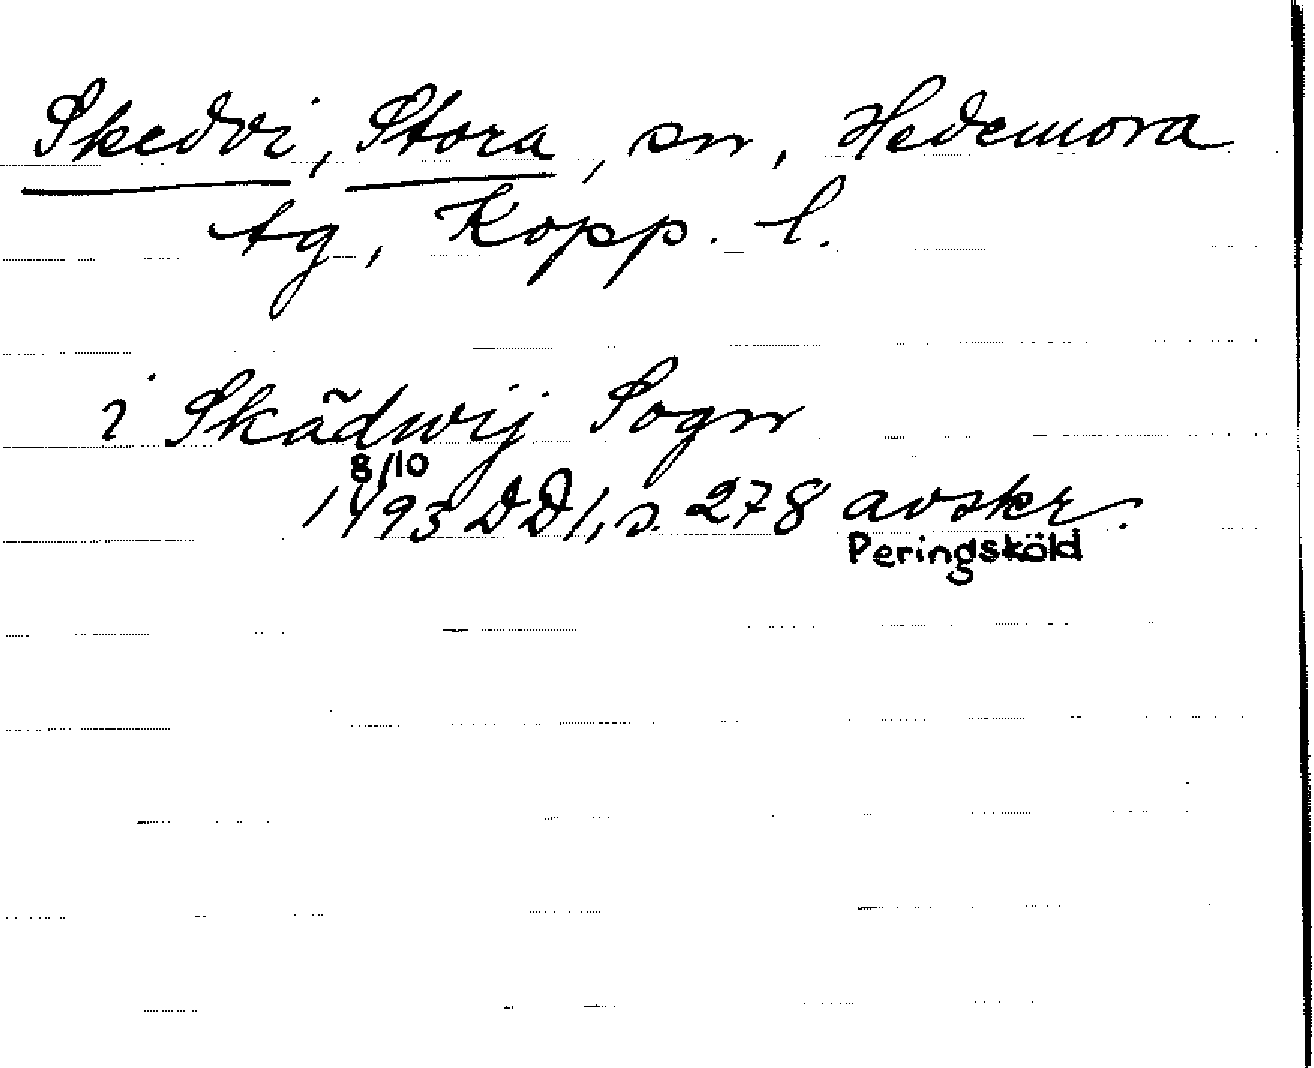 Skedvi, Stora, sn, Hedemora
tg, Kopp. l.
i Skãdwij Sogn
8/10
1493 DD 1, s. 278 avskr.
Peringsköld